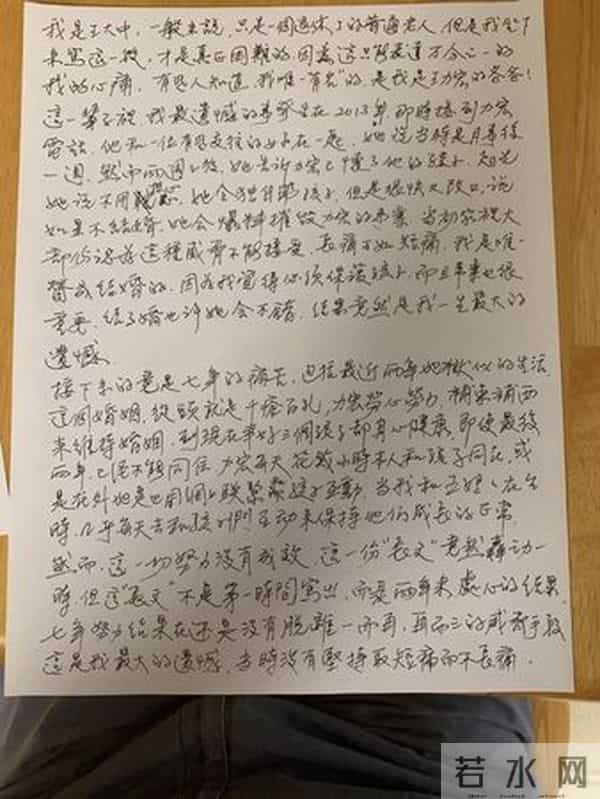 我是王大中，一般來說，只是一個退休了的普通老人，但是我坐下
來寫這一段，才是真正困難的，因為這只能表達萬分之一的
我的心痛，有些人知道，我唯一有名"的，是我是王力宏的爸爸！
這一輩子裡，我最遺憾的事發生在2013年，即時接到力宏
電話，他和一位有些交往的女子在一起，她說當時是月事後
一週，然而兩週之後，她告訴力宏已懷了他的孩子，起先
她說不用擔心，她會獨自帶孩子，但是很快又改口，說
如果不結婚，她會爆料摧毀力宏的事業，當初家裡大
部份認為這種威脅不能接受，長痛不如短痛，我是唯一
贊成結婚的，因為我覺得必須保護孩子，而且事業也很
重要，結了婚也許她會不錯，結果竟然是我一生最大的
遺憾。
接下來的竟是七年的痛苦，包括最近兩年地獄似的生活，
這個婚姻，從頭就是千瘡百孔，力宏勞心勞力，補東補西
來維持婚姻，到現在幸好三個孩子都身心健康，即使最後
兩年，已經不能同住，力宏每天花幾小時本人和孩子同在，或
是在外地也用網上聯繫幫孩子互動，當我和五娣在台
時，几乎每天去和孩子們互動來保持他們成長的正常
然而，這一切努力沒有成效，這一份"長文"竟然轟动一
時，但這"長文"不是第一時間寫出，而是兩年來處心的結果，
七年努力結果在还是沒有脫離一而再，再而三的威脅手段
這是我最大的遺憾，當時沒有堅持取短痛而不長痛．
若水网